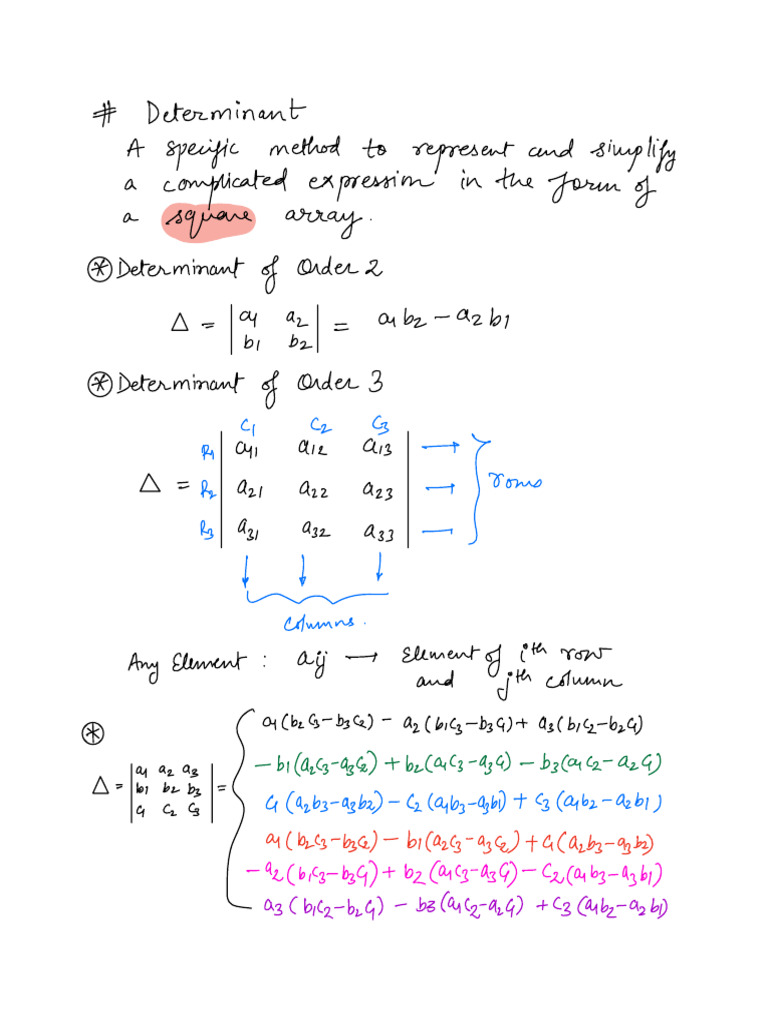 # Determinant
A specific method to represent and simplify
a complicated expression in the form of
a square array.
⊛ Determinant of Order 2
Δ = | a1 a2 | = a1b2 - a2b1
| b1 b2 |
⊛ Determinant of Order 3
C1 C2 C3
R1 | a11 a12 a13 | →
Δ = R2 | a21 a22 a23 | → rows
R3 | a31 a32 a33 | →
columns.
Any Element : aij → Element of ith row
and jth column
⊛
a1(b2c3-b3c2) - a2(b1c3-b3c1) + a3(b1c2-b2c1)
Δ = | a1 a2 a3 | =
| b1 b2 b3 |
| c1 c2 c3 |
-b1(a2c3-a3c2) + b2(a1c3-a3c1) - b3(a1c2-a2c1)
c1(a2b3-a3b2) - c2(a1b3-a3b1) + c3(a1b2-a2b1)
a1(b2c3-b3c2) - b1(a2c3-a3c2) + c1(a2b3-a3b2)
-a2(b1c3-b3c1) + b2(a1c3-a3c1) - c2(a1b3-a3b1)
a3(b1c2-b2c1) - b3(a1c2-a2c1) + c3(a1b2-a2b1)